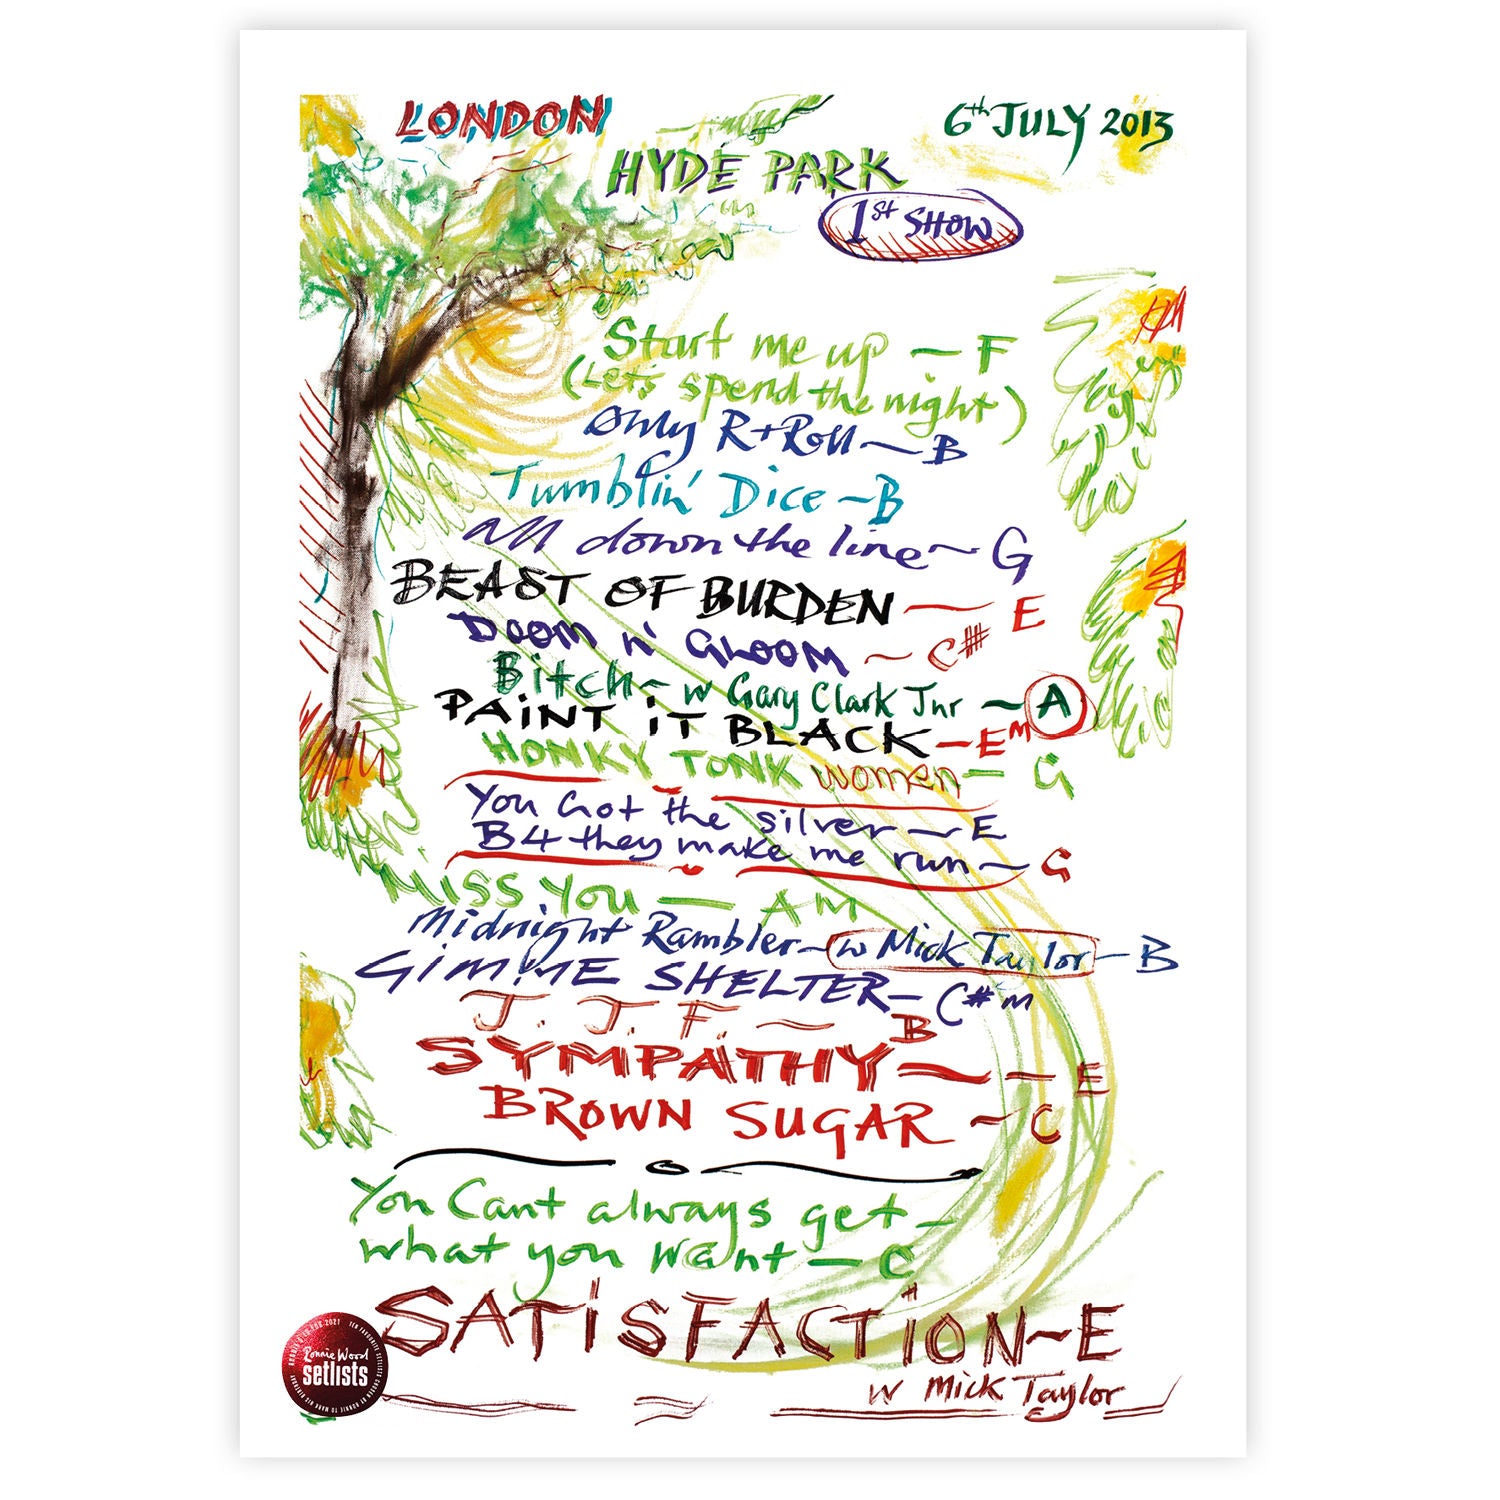 LONDON
6th JULY 2013
HYDE PARK
1st SHOW
Start me up ~ F
(Let's spend the night)
Only R+Roll ~ B
Tumblin' Dice ~ B
All down the line ~ G
BEAST OF BURDEN ~ E
DOOM N' GLOOM ~ C#
Bitch ~ w Gary Clark Jnr ~ A
PAINT iT BLACK - Em
HONKY TONK women - G
You Got the silver ~ E
B4 they make me run ~ G
MISS YOU — AM
Midnight Rambler ~ w Mick Taylor - B
GIMME SHELTER - C#m
J. J. F. ~ B
SYMPATHY ~ - E
BROWN SUGAR ~ C
You Cant always get -
what you want - C
SATiSFACTION ~ E
w Mick Taylor
Ronnie Wood
setlists